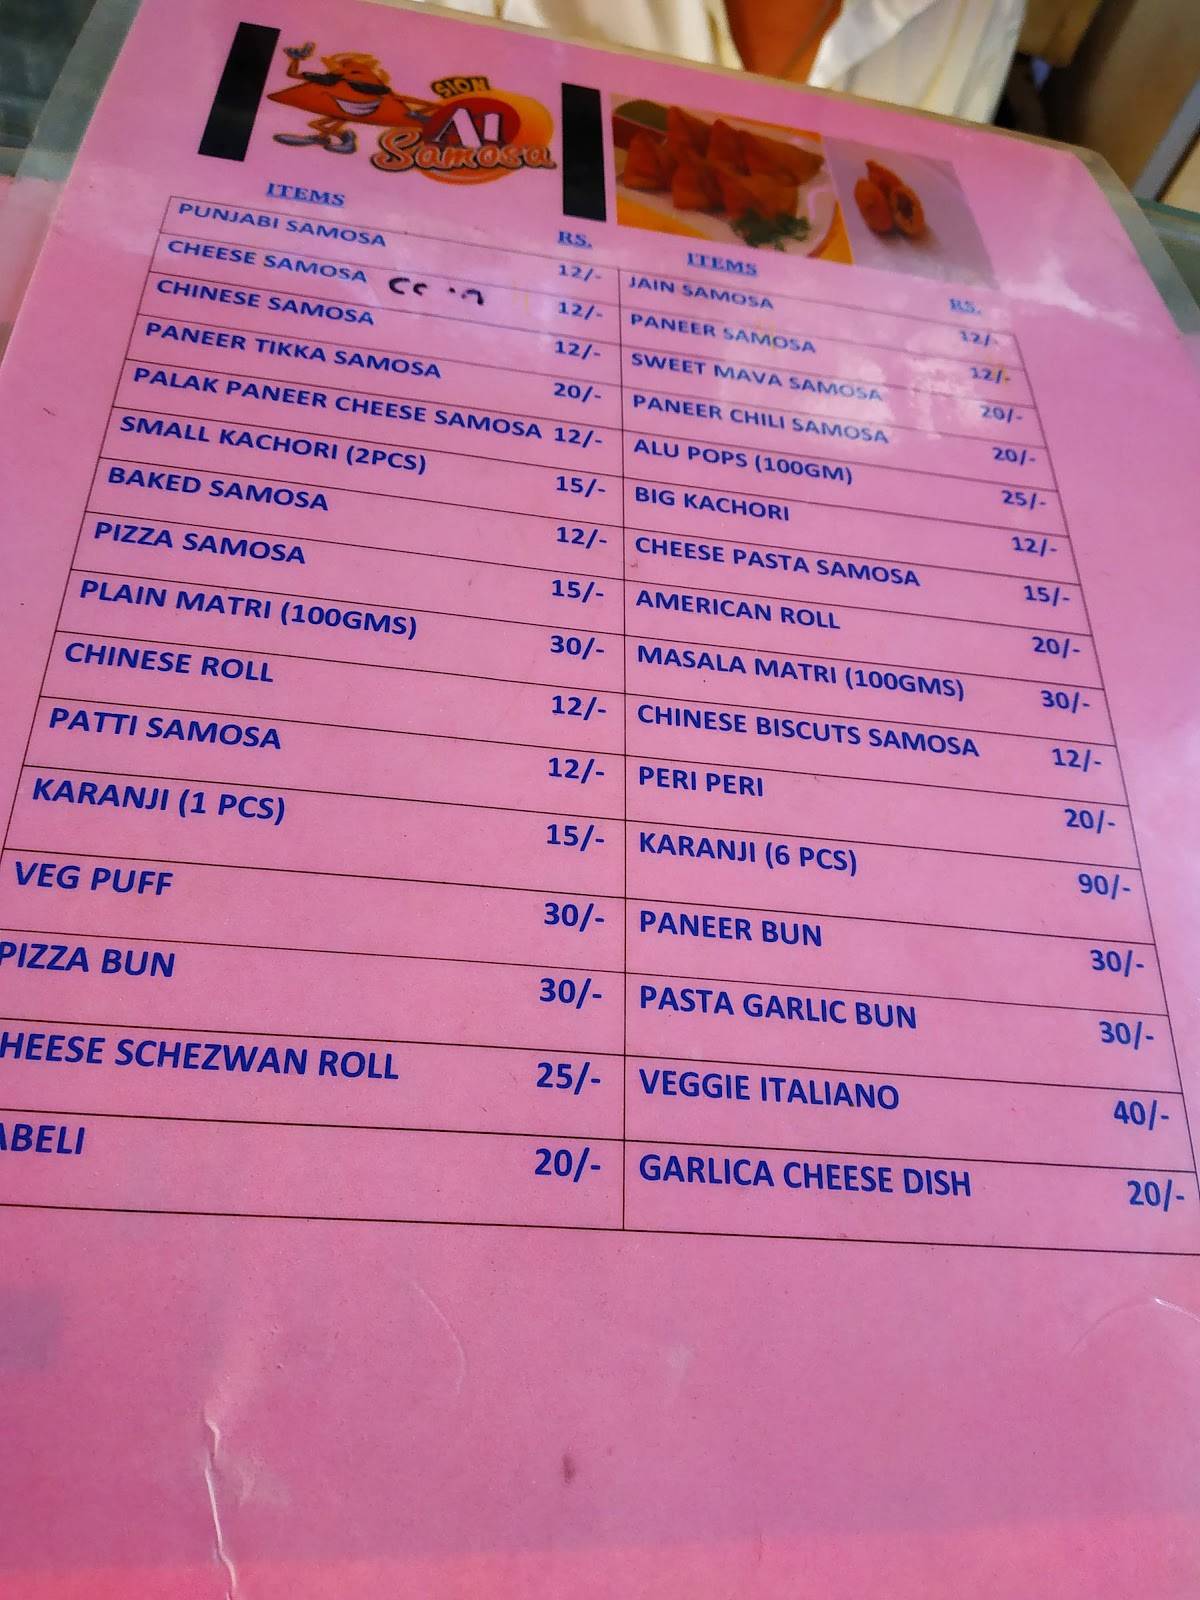 SION
A1
Samosa
ITEMS RS. ITEMS RS.
PUNJABI SAMOSA 12/- JAIN SAMOSA 12/-
CHEESE SAMOSA 12/- PANEER SAMOSA 12/-
CHINESE SAMOSA 12/- SWEET MAVA SAMOSA 20/-
PANEER TIKKA SAMOSA 20/- PANEER CHILI SAMOSA 20/-
PALAK PANEER CHEESE SAMOSA 12/- ALU POPS (100GM) 25/-
SMALL KACHORI (2PCS) 15/- BIG KACHORI 12/-
BAKED SAMOSA 12/- CHEESE PASTA SAMOSA 15/-
PIZZA SAMOSA 15/- AMERICAN ROLL 20/-
PLAIN MATRI (100GMS) 30/- MASALA MATRI (100GMS) 30/-
CHINESE ROLL 12/- CHINESE BISCUTS SAMOSA 12/-
PATTI SAMOSA 12/- PERI PERI 20/-
KARANJI (1 PCS) 15/- KARANJI (6 PCS) 90/-
VEG PUFF 30/- PANEER BUN 30/-
PIZZA BUN 30/- PASTA GARLIC BUN 30/-
HEESE SCHEZWAN ROLL 25/- VEGGIE ITALIANO 40/-
ABELI 20/- GARLICA CHEESE DISH 20/-